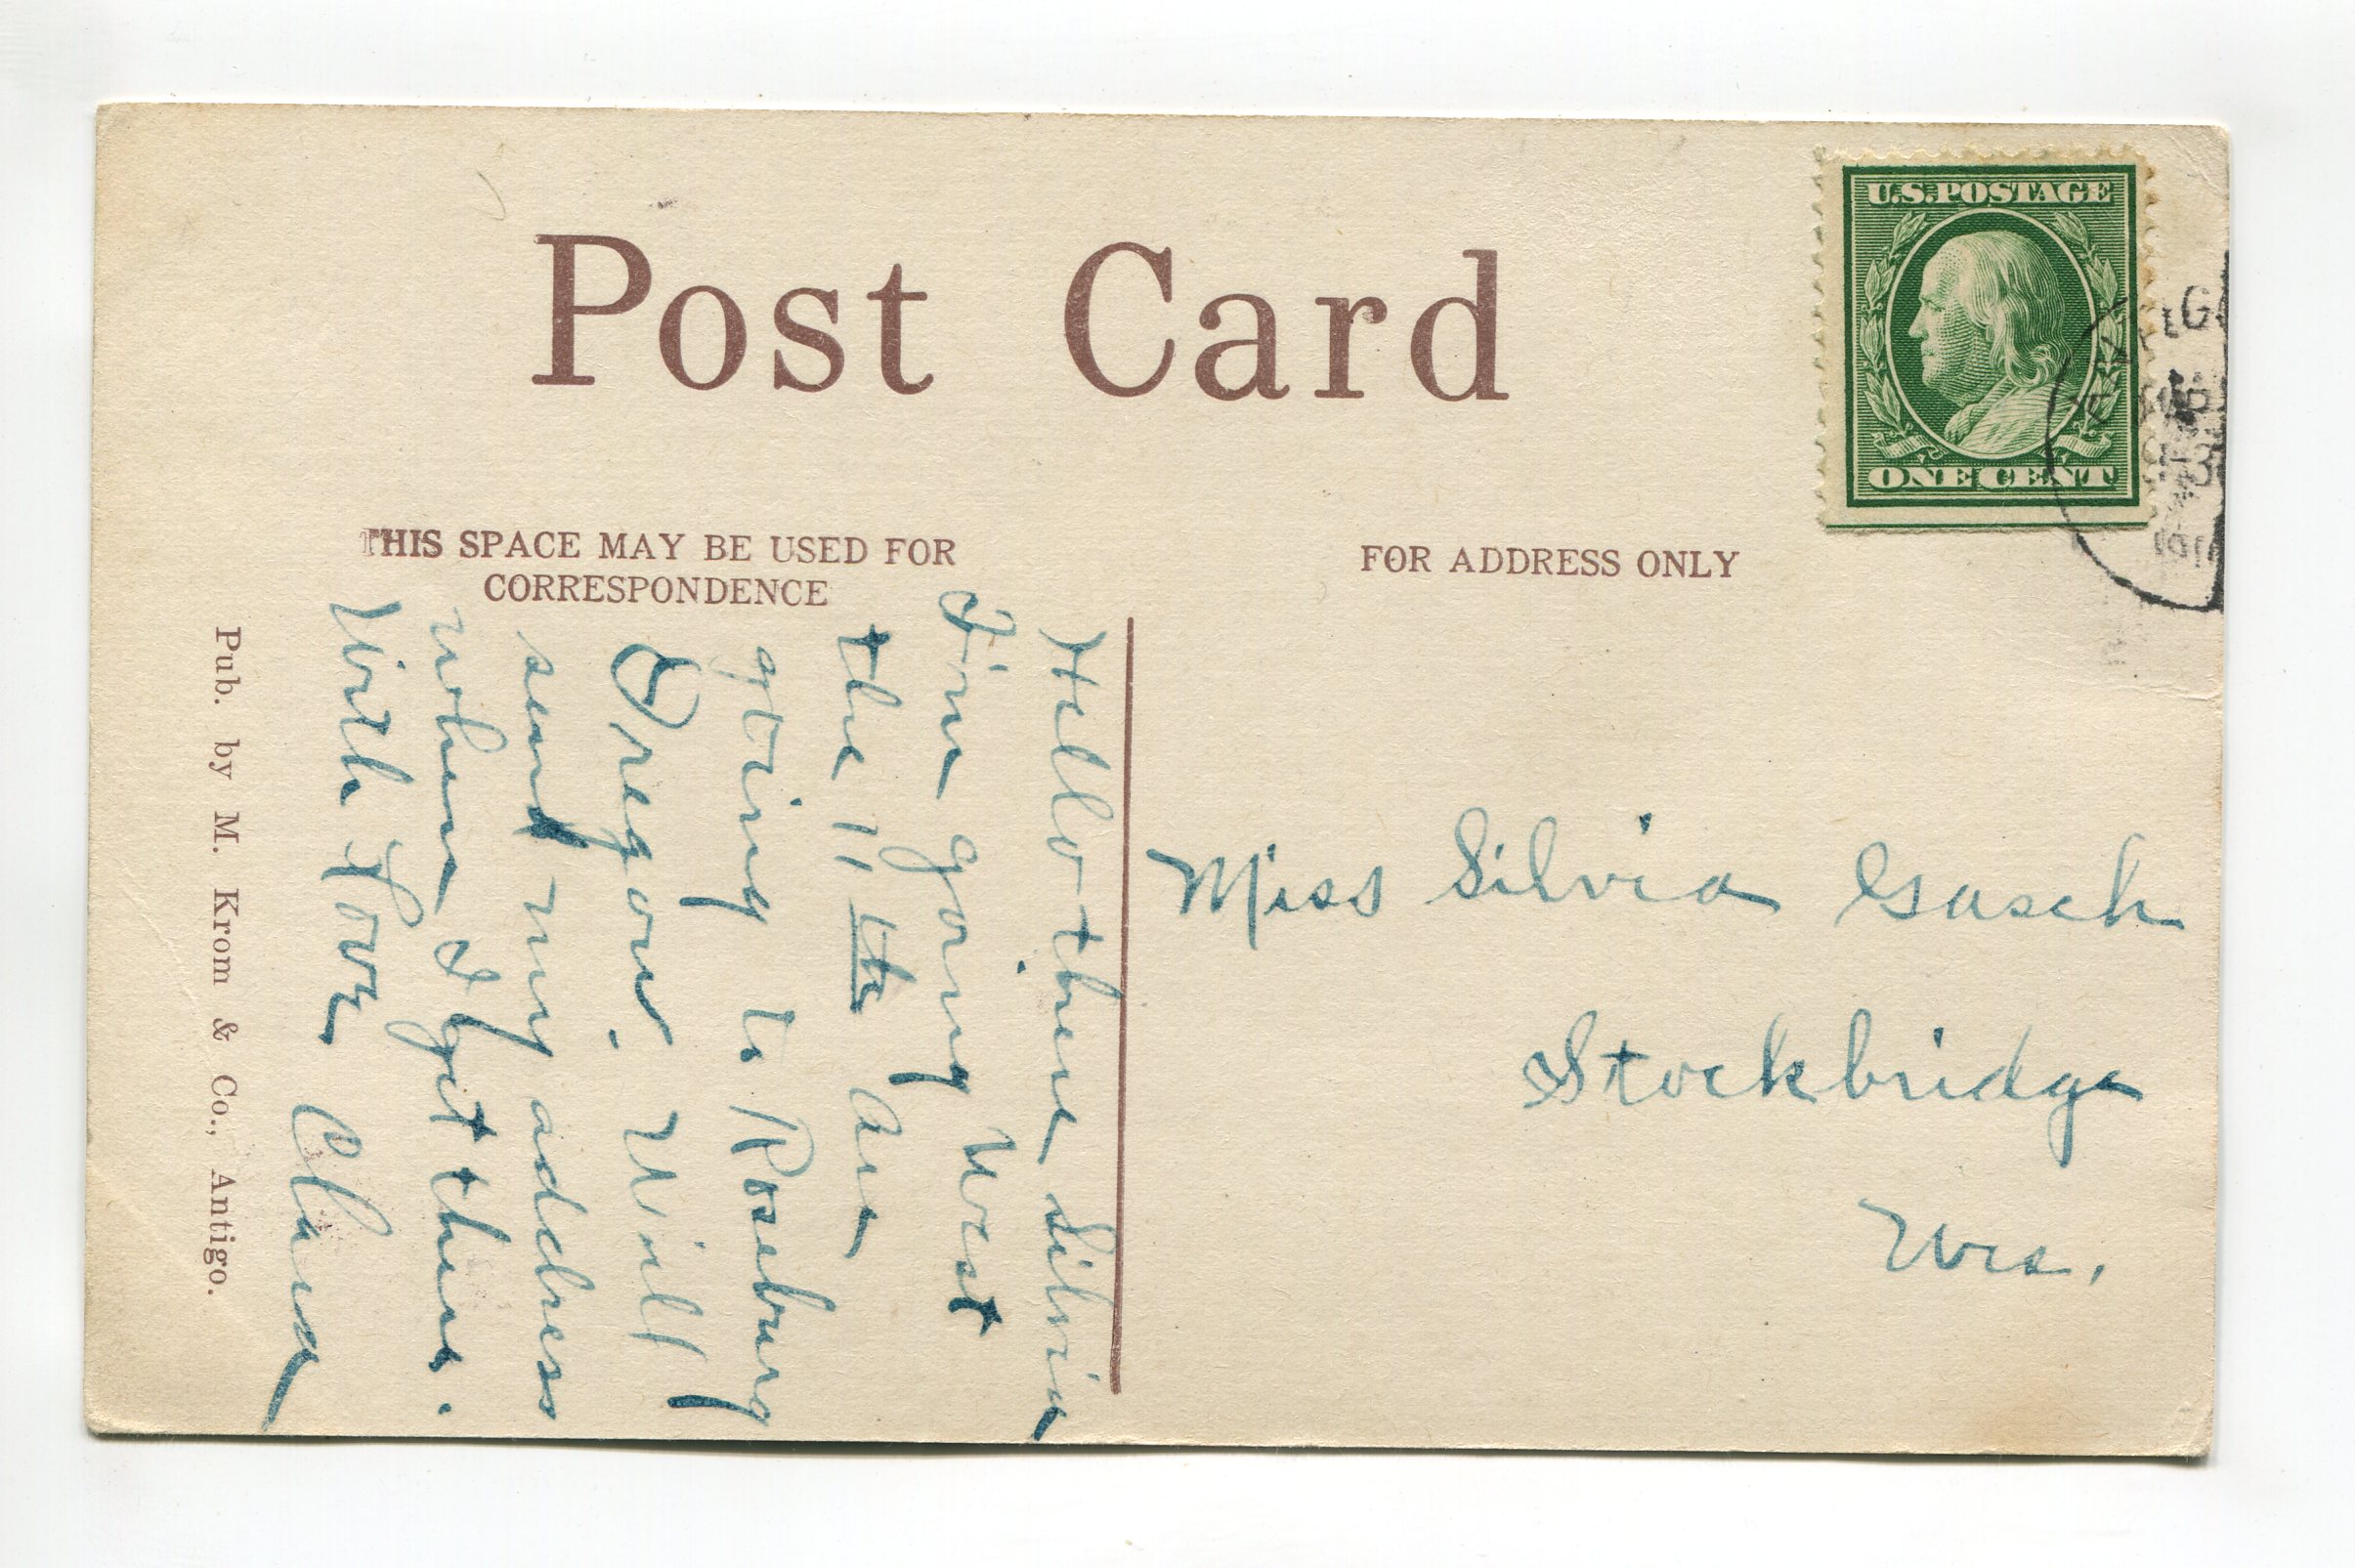 Post Card
U.S. POSTAGE
ONE CENT
THIS SPACE MAY BE USED FOR
CORRESPONDENCE
FOR ADDRESS ONLY
Hello there Silvia
I'm going west
the 11th Am
gting to Roseburg
Oregon. Will
send my address
when I get there.
With Love Clara
Miss Silvia Gasch
Stockbridge
Wis.
Pub. by M. Krom & Co., Antigo.